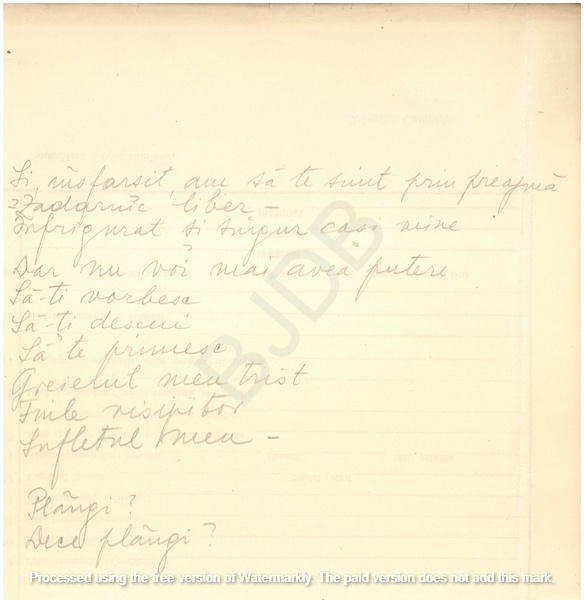 Si, însfarsit, am să te simt prin preajmă
Zadarnic liber –
Înfrigurat si singur casi mine
Dar nu voi mai avea putere
Să-ti vorbesc
Să-ti descui
Să te primesc
Greierul meu trist
Fiule risipitor
Sufletul meu –
Plângi?
Dece plângi?
BJDB
Processed using the free version of Watermarkly. The paid version does not add this mark.